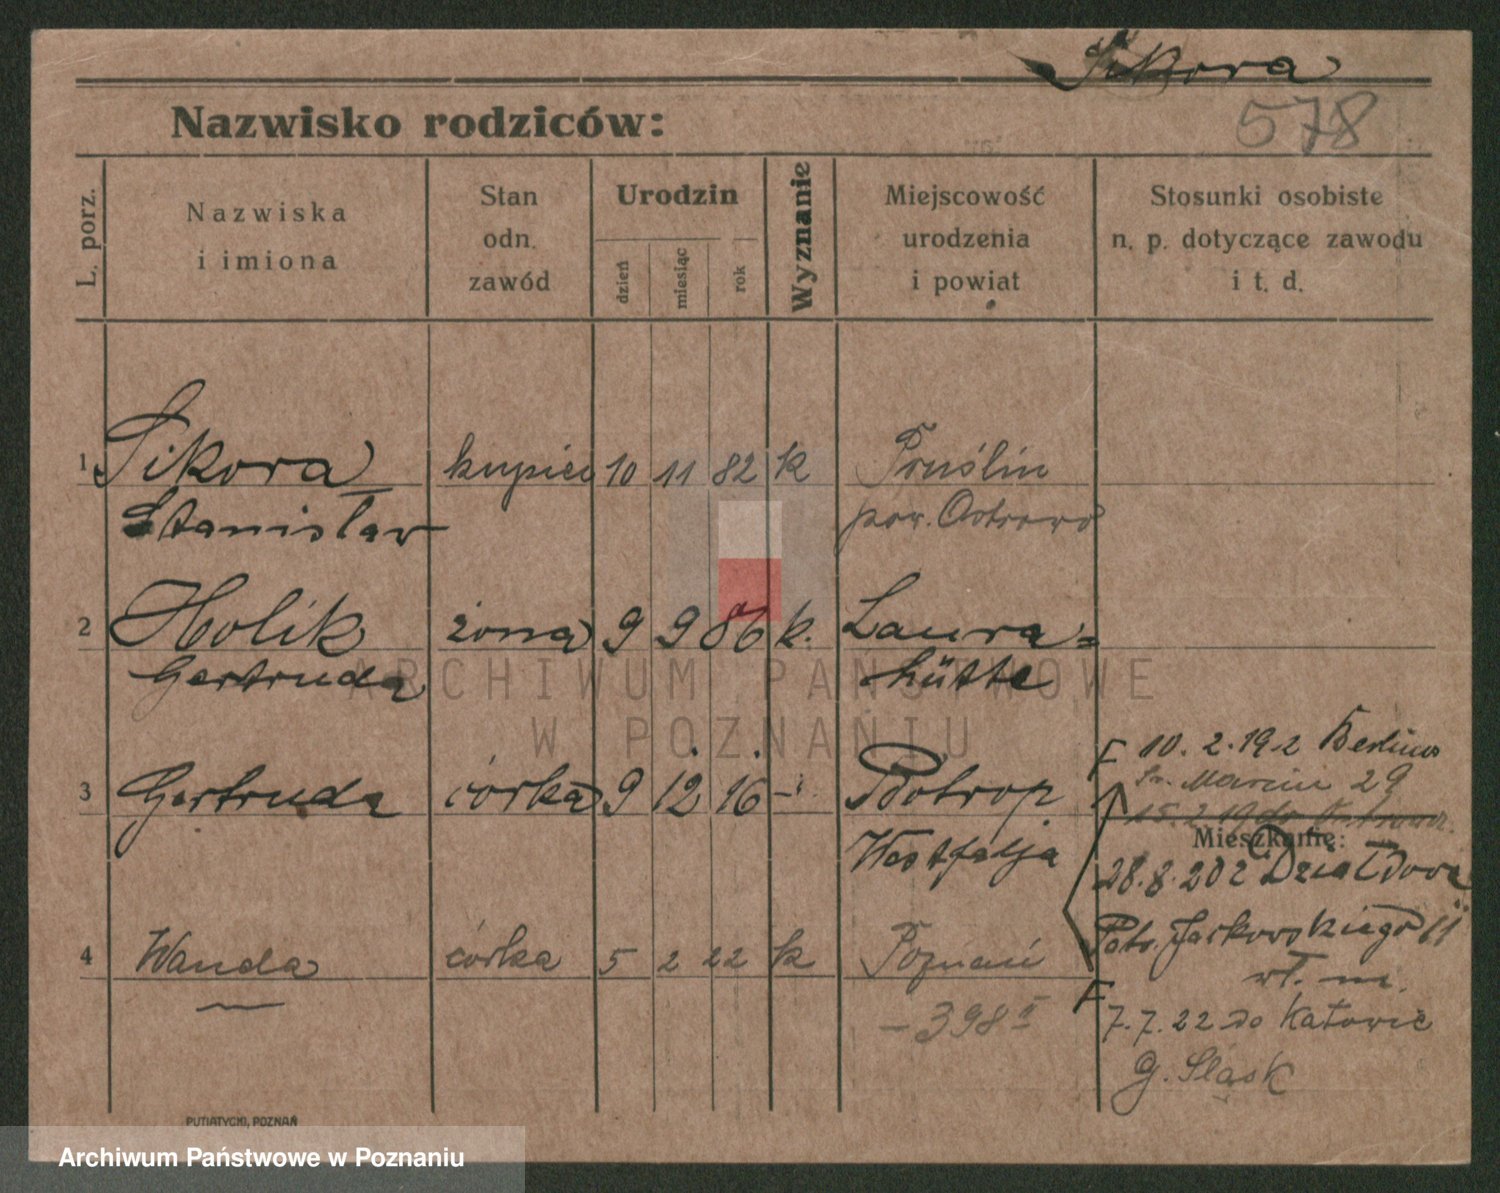 Sikora
Nazwisko rodziców:
578
L. porz.
Nazwiska
i imiona
Stan
odn.
zawód
Urodzin
dzień
miesiąc
rok
Wyznanie
Miejscowość
urodzenia
i powiat
Stosunki osobiste
n. p. dotyczące zawodu
i t. d.
1 Sikora kupiec 10 11 82 k Pruślin
Stanisław pow. Ostrowo
2 Holik żona 9 9 86 k. Laura=
Gertruda hütte
F 10. 2. 19 2 Berlina
św. Marcin 29
3 Gertruda córka 9 12 16 Botrop
15. 2. 19 do
Mieszkanie:
Westfalja
28. 8. 20 z Działdowa
Jarkowskiego 11
4 Wanda córka 5 2 22 k Poznań
wł. m.
F 7. 7. 22 do Katowic
- 398 II
G. Śląsk
PUTIATYCKI, POZNAŃ
ARCHIWUM PAŃSTWOWE
W POZNANIU
Archiwum Państwowe w Poznaniu